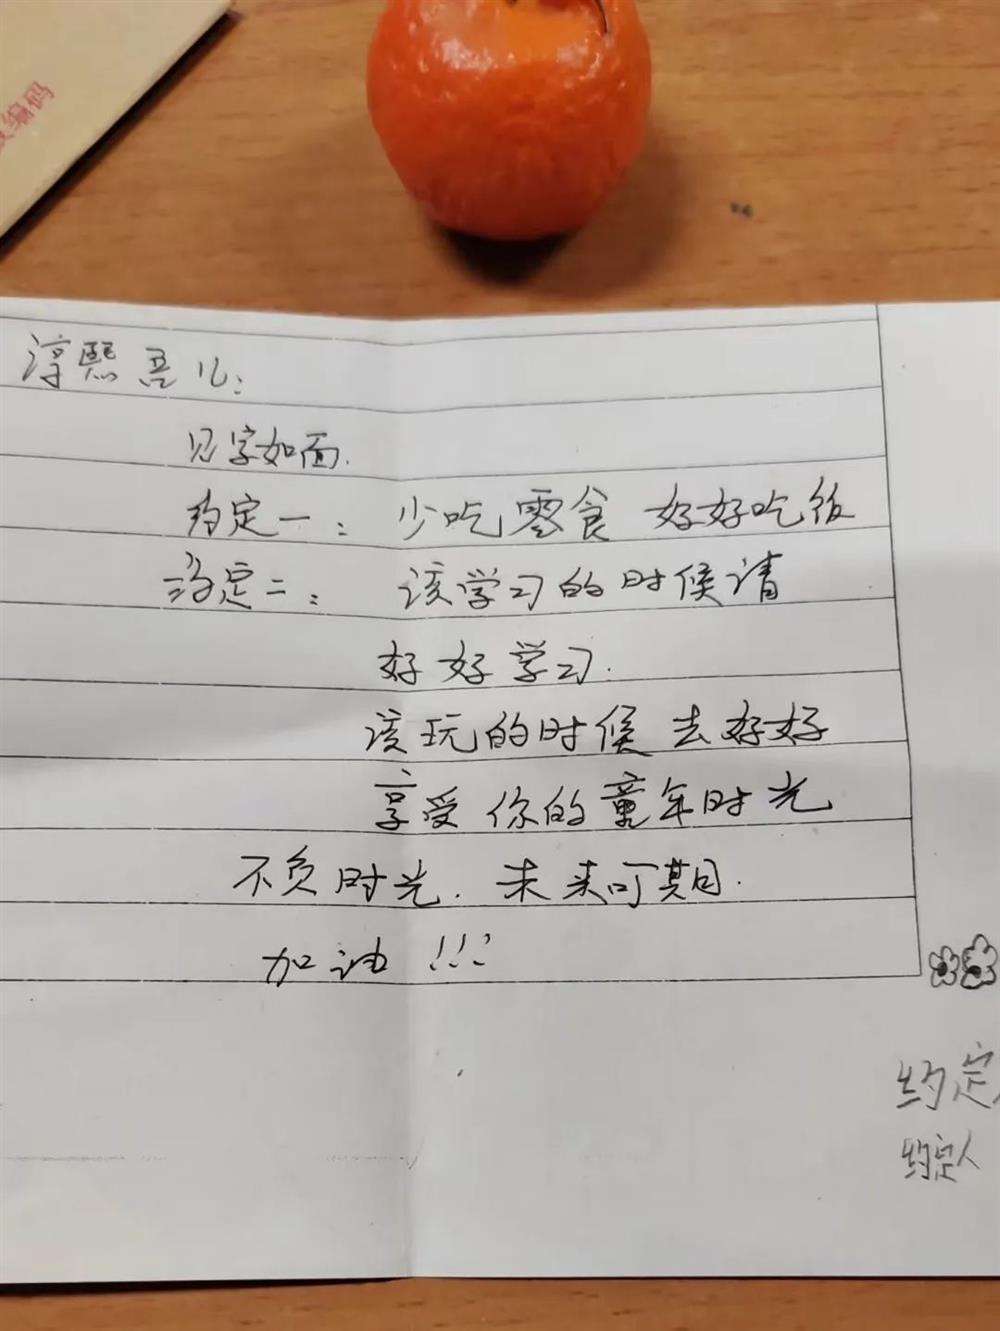 编码
淳熙吾儿：
见字如面.
约定一：少吃零食 好好吃饭
约定二：该学习的时候请
好好学习.
该玩的时候去好好
享受你的童年时光
不负时光.未来可期.
加油!!!
约定人
约定人